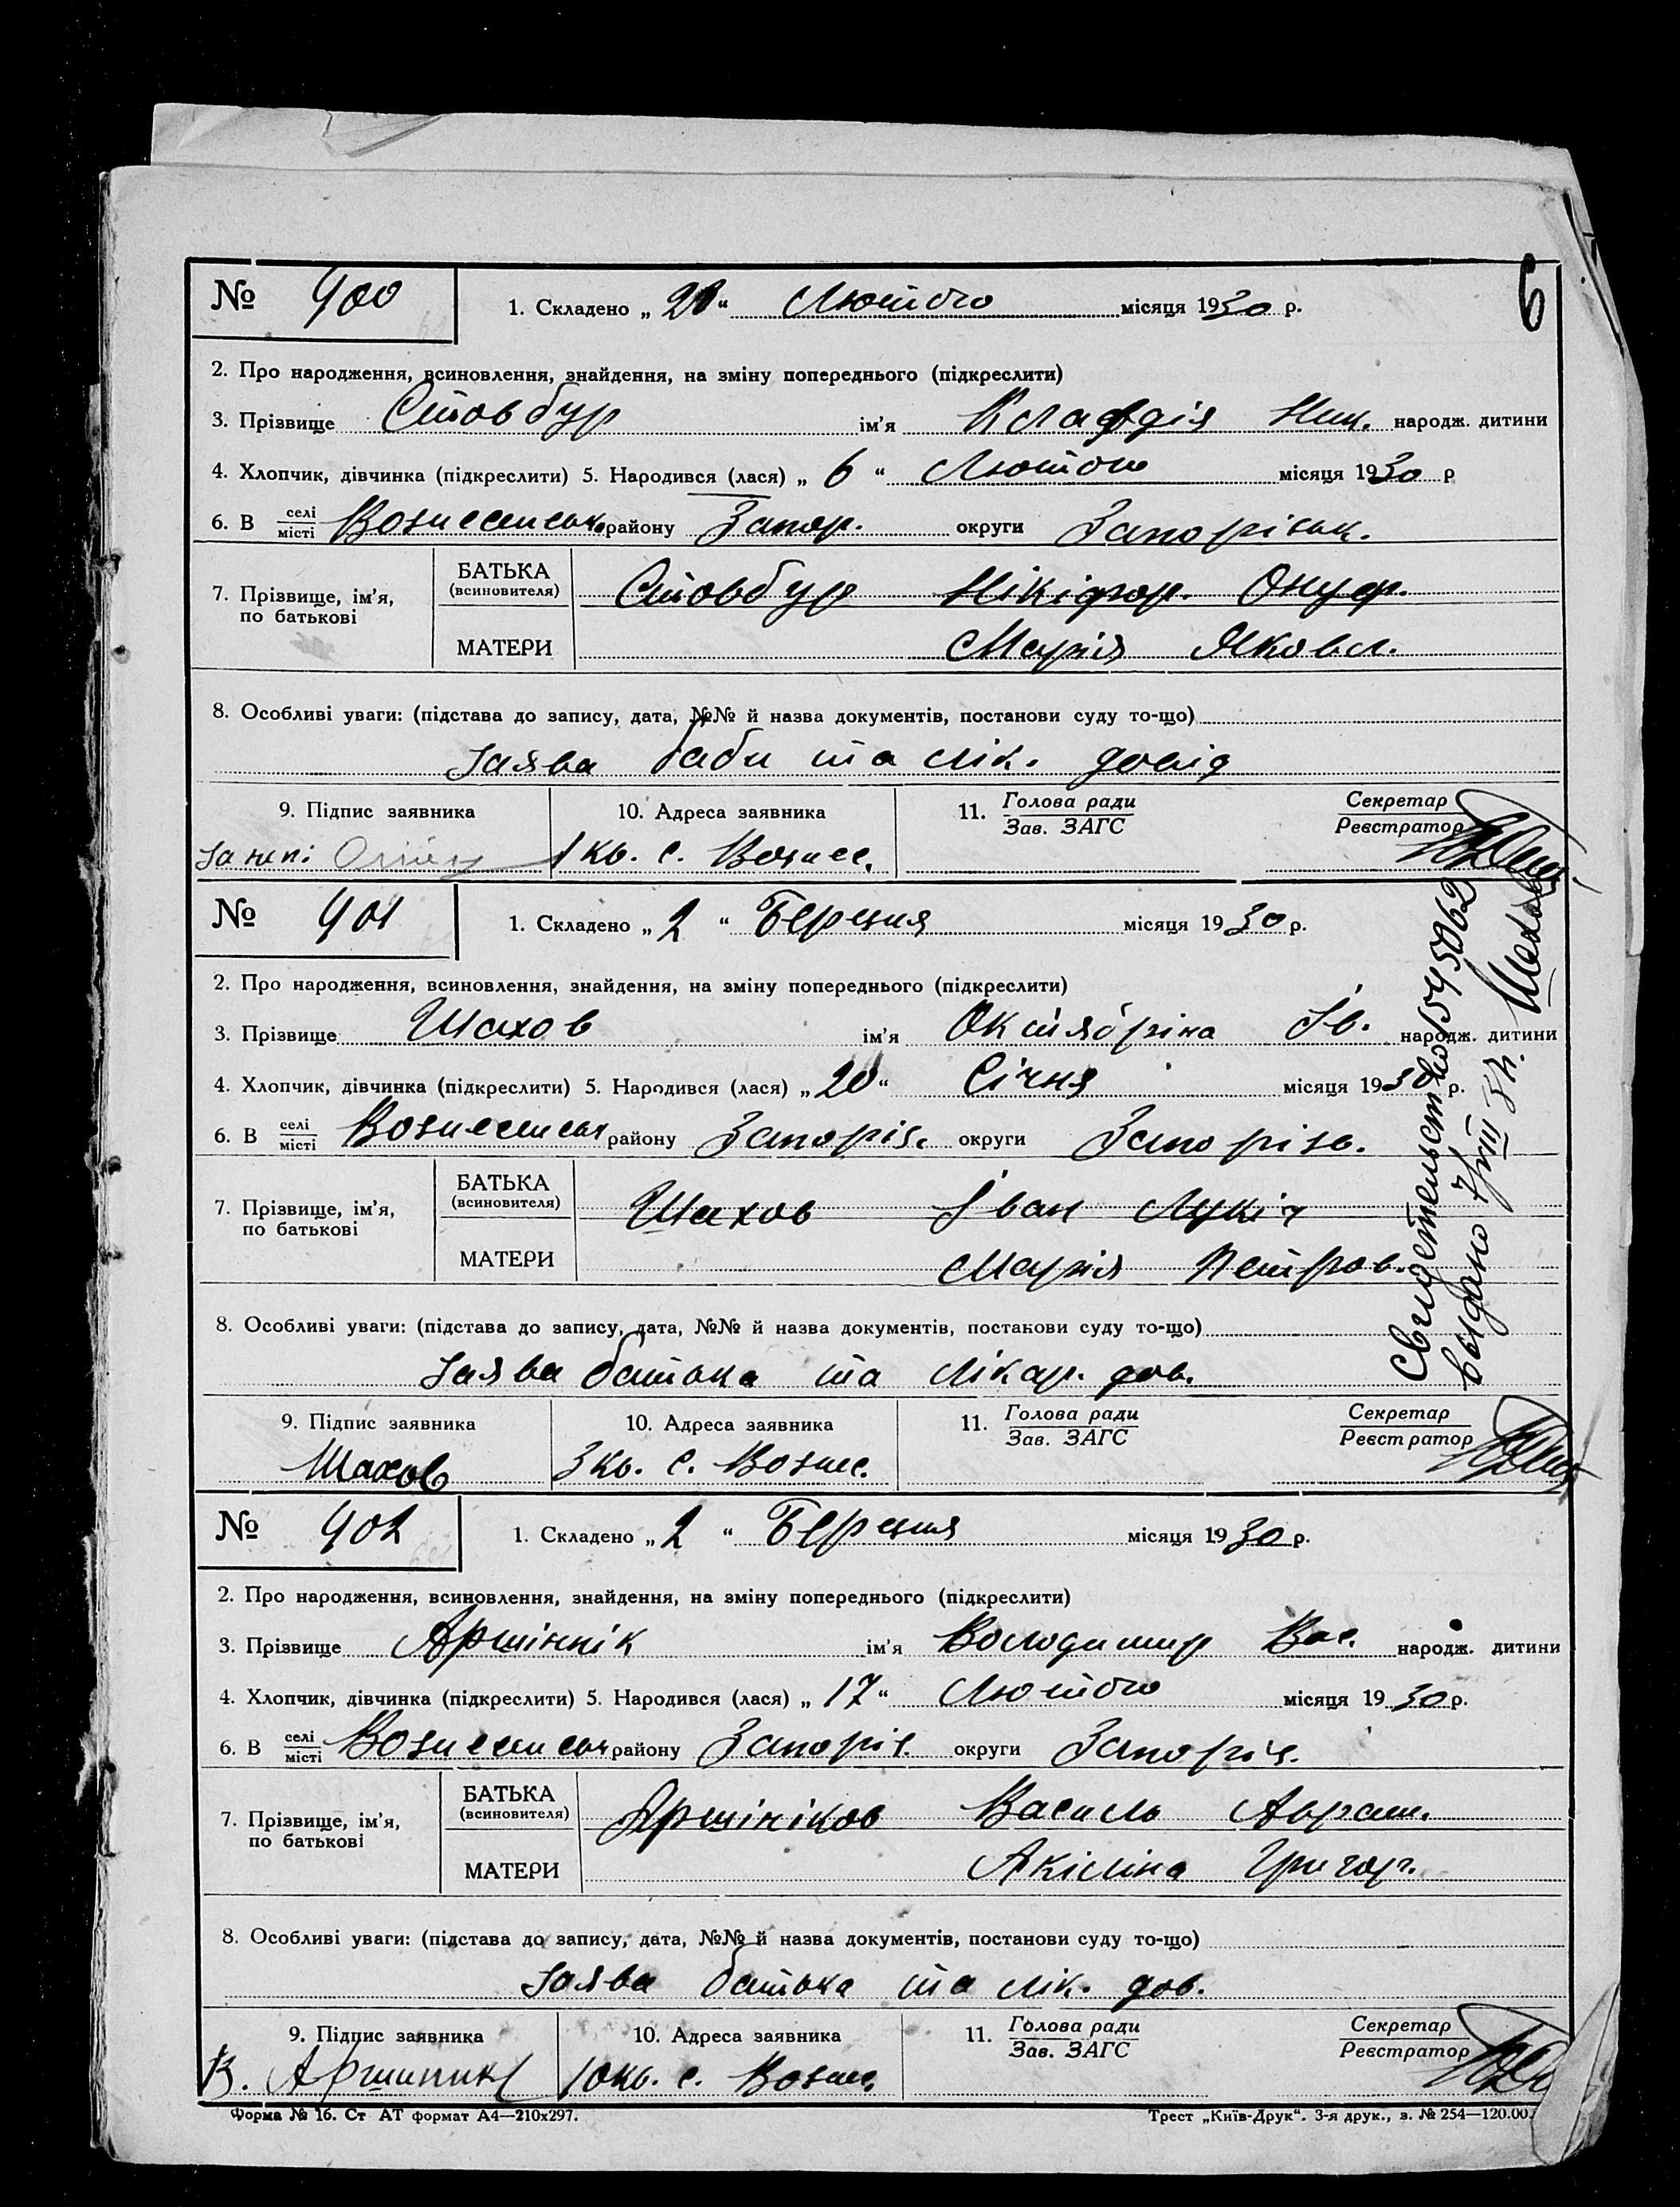 6
№ 900 1. Складено „ 28 “ Лютого місяця 1930 р.
2. Про народження, всиновлення, знайдення, на зміну попереднього (підкреслити)
3. Прізвище Стовбур ім'я Клавдія Ник. народж. дитини
4. Хлопчик, дівчинка (підкреслити) 5. Народився (лася) „ 6 “ Лютого місяця 1930 р
6. В селі/місті Вознесенськ району Запор. округи Запорізьк.
7. Прізвище, ім'я, по батькові
БАТЬКА (всиновителя) Стовбур Нікіфор. Онуф.
МАТЕРИ Марія Яковл.
8. Особливі уваги: (підстава до запису, дата, №№ й назва документів, постанови суду то-що)
Заява баби та лік. довід
9. Підпис заявника 10. Адреса заявника 11. Голова ради/Зав. ЗАГС Секретар/Реєстратор
1 кв. с. Вознес.
№ 901 1. Складено „ 2 “ Березня місяця 1930 р.
2. Про народження, всиновлення, знайдення, на зміну попереднього (підкреслити)
3. Прізвище Шахов ім'я Октябріна Ів. народж. дитини
4. Хлопчик, дівчинка (підкреслити) 5. Народився (лася) „ 20 “ Січня місяця 1930 р.
6. В селі/місті Вознесенськ району Запоріз. округи Запорізь.
7. Прізвище, ім'я, по батькові
БАТЬКА (всиновителя) Шахов Іван Лукіч
МАТЕРИ Марія Петров.
8. Особливі уваги: (підстава до запису, дата, №№ й назва документів, постанови суду то-що)
Заява батька та лікар. дов.
9. Підпис заявника 10. Адреса заявника 11. Голова ради/Зав. ЗАГС Секретар/Реєстратор
Шахов 3 кв. с. Вознес.
Свидетельство
выдано Шахов
№ 902 1. Складено „ 2 “ Березня місяця 1930 р.
2. Про народження, всиновлення, знайдення, на зміну попереднього (підкреслити)
3. Прізвище Аршіннік ім'я Володимир Вас. народж. дитини
4. Хлопчик, дівчинка (підкреслити) 5. Народився (лася) „ 17 “ Лютого місяця 1930 р.
6. В селі/місті Вознесенськ району Запоріз. округи Запоріз.
7. Прізвище, ім'я, по батькові
БАТЬКА (всиновителя) Аршініков Василь Аврам.
МАТЕРИ Акіліна Григор.
8. Особливі уваги: (підстава до запису, дата, №№ й назва документів, постанови суду то-що)
Заява батька та лік. дов.
9. Підпис заявника 10. Адреса заявника 11. Голова ради/Зав. ЗАГС Секретар/Реєстратор
В. 10 кв. с. Вознес.
Форма № 16. Ст АТ формат А4—210х297. Трест „Київ-Друк“. 3-я друк., з. № 254—120.00